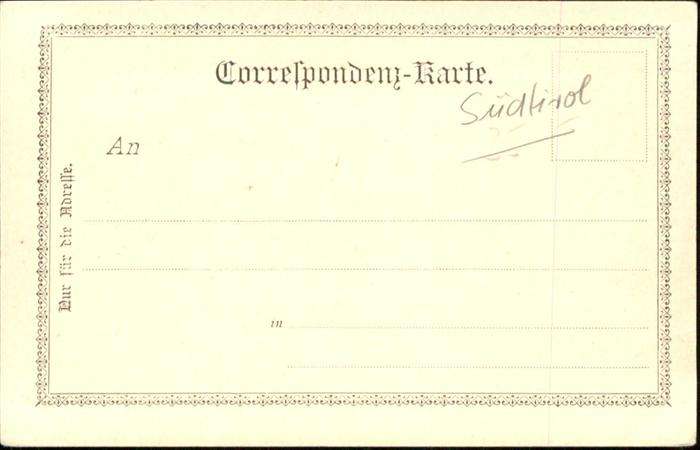 Correſpondenz-Karte.
Südtirol
An
Nur für die Adreſſe.
in